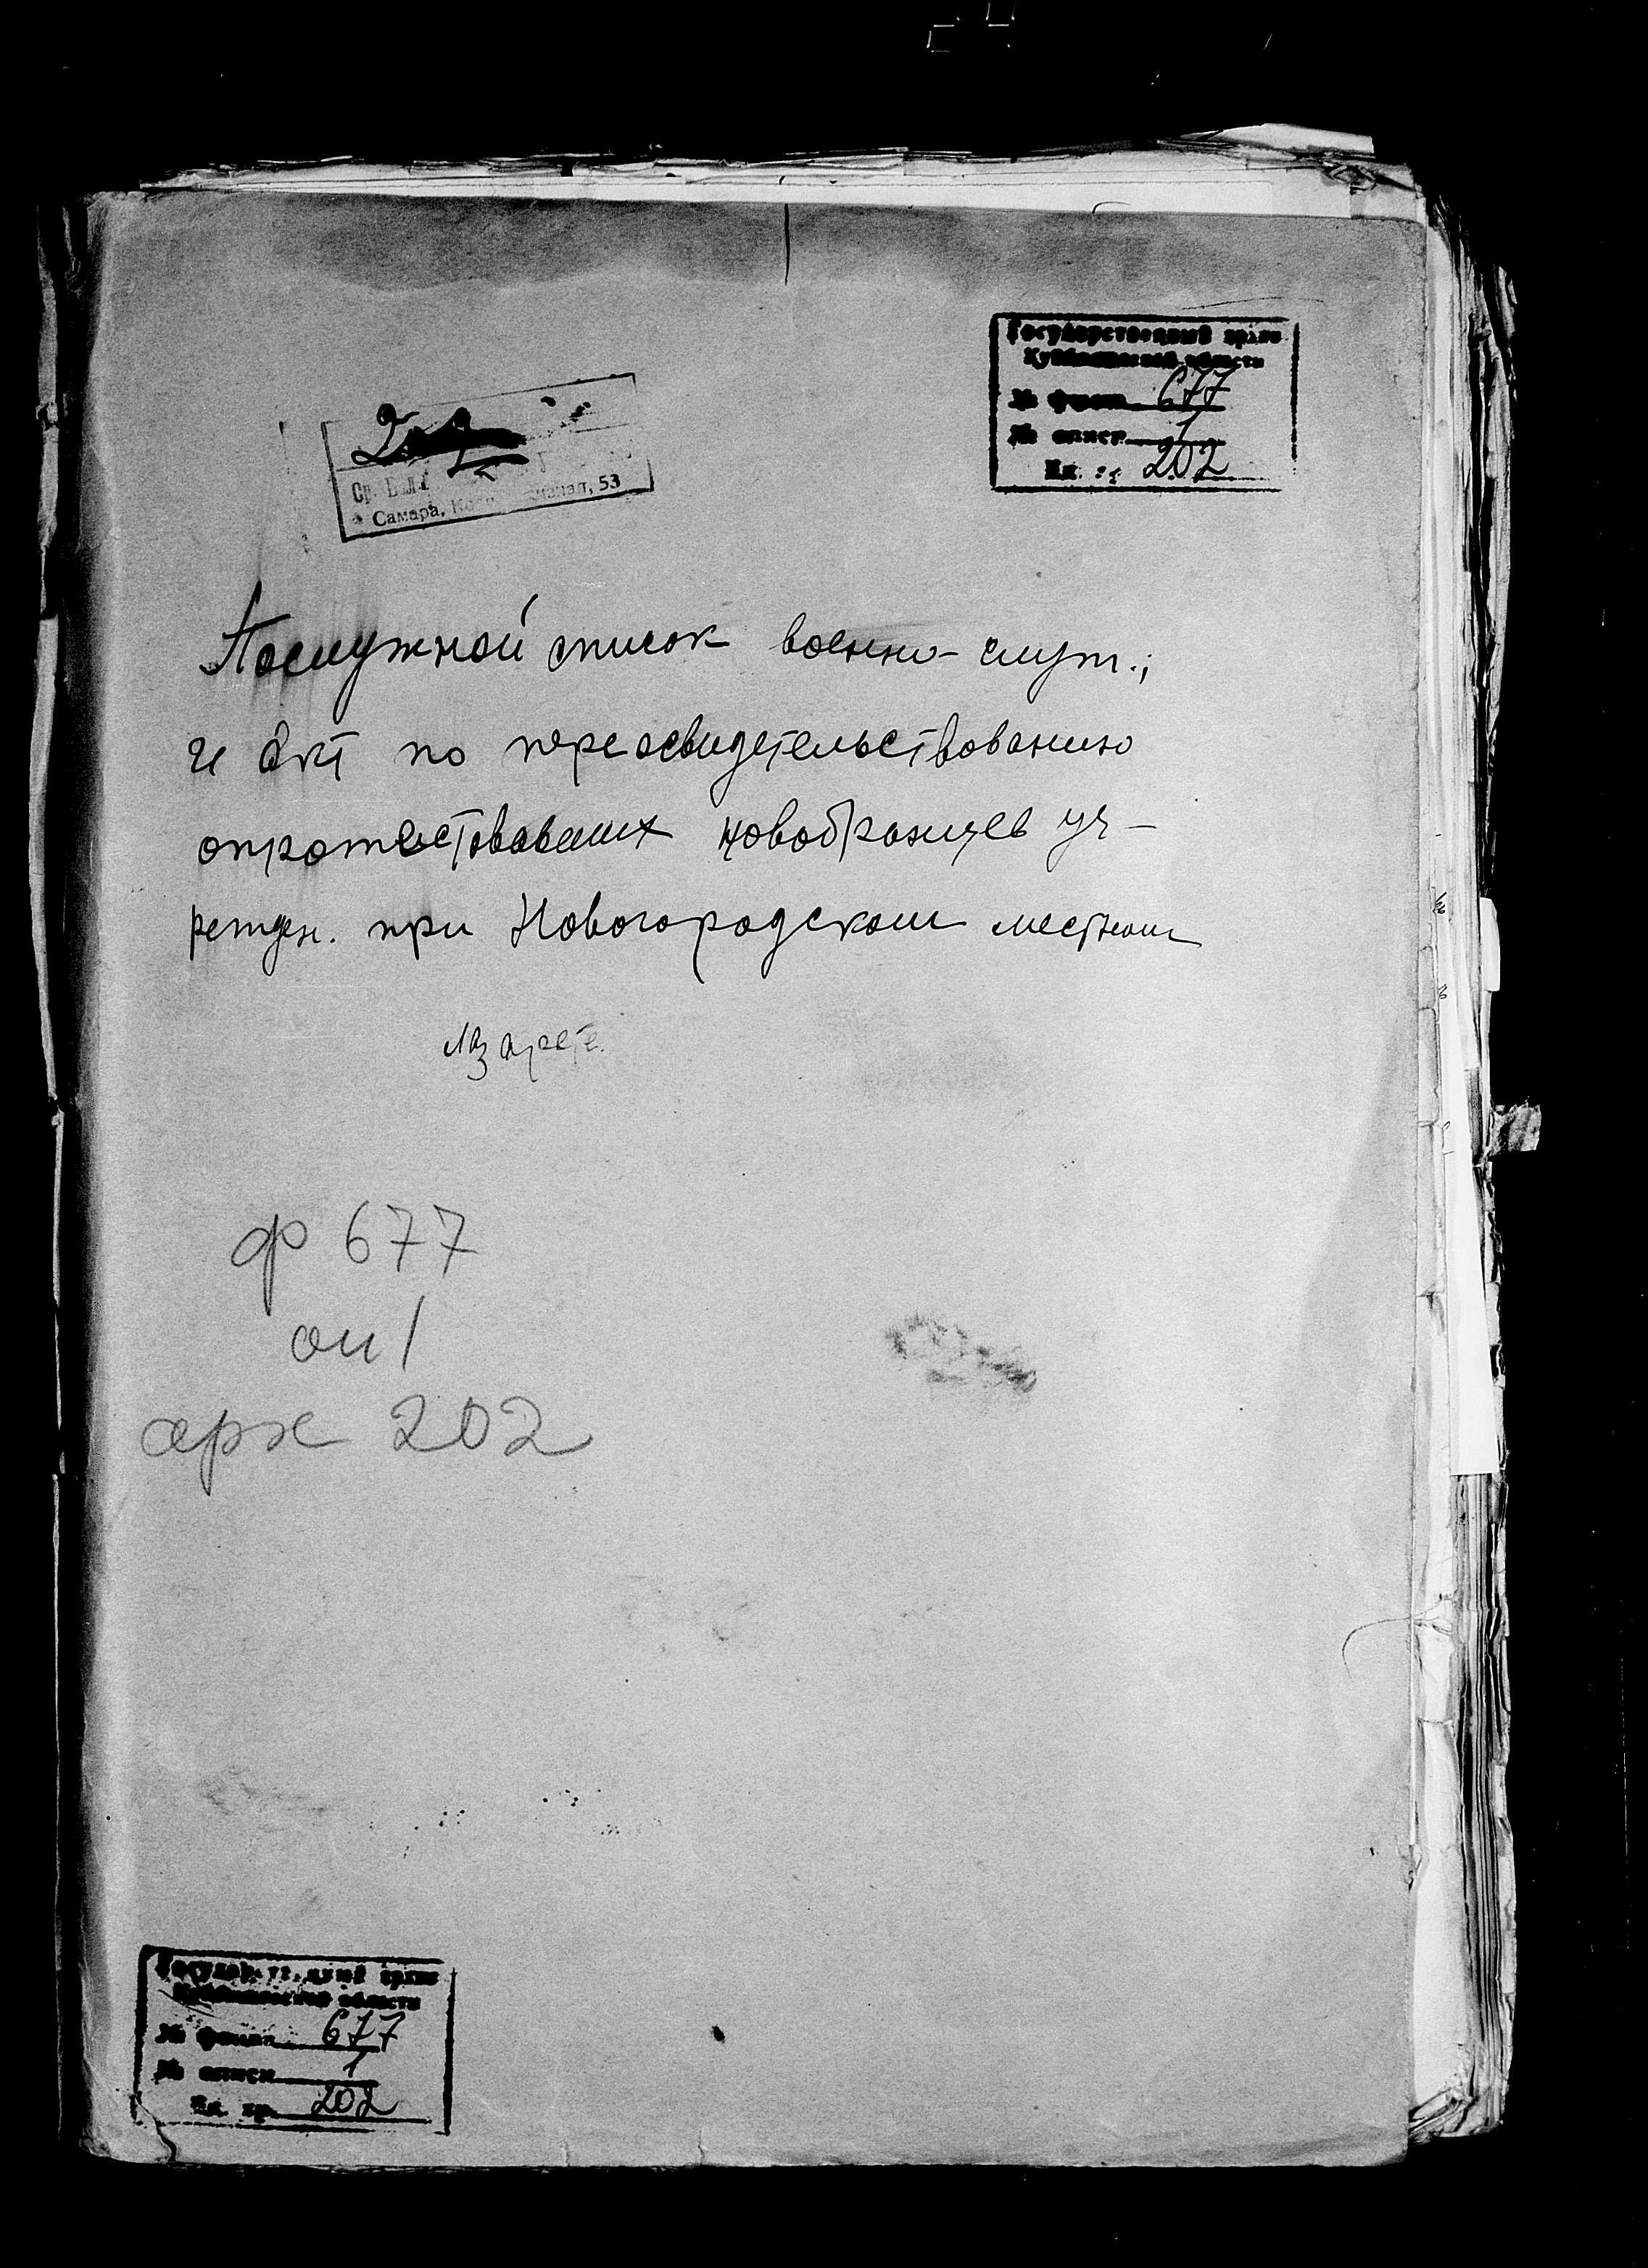 Государственный архив
Куйбышевской области
№ фонда 677
№ описи 1
Ед. хр. 202
Самара, 53
Послужной список военно-служ.;
и Акт по переосвидетельствованию
опротестовавших новобранцев уч-
режден. при Новогородском местном
лазарете.
ф 677
оп 1
арх 202
Государственный архив
Куйбышевской области
№ фонда 677
№ описи 1
Ед. хр. 202